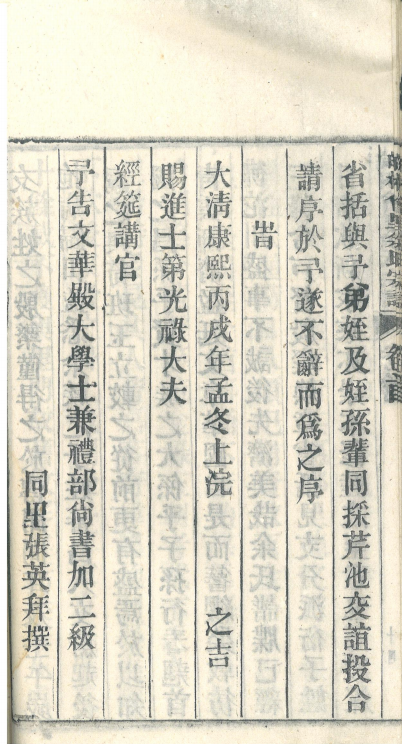 卷首
省括與予弟姪及姪孫輩同採芹池交誼投合
請序於予遂不辭而爲之序
旹
大清康熙丙戌年孟冬上浣　之吉
賜進士第光祿大夫
經筵講官
予告文華殿大學士兼禮部尚書加二級
同里張英拜撰